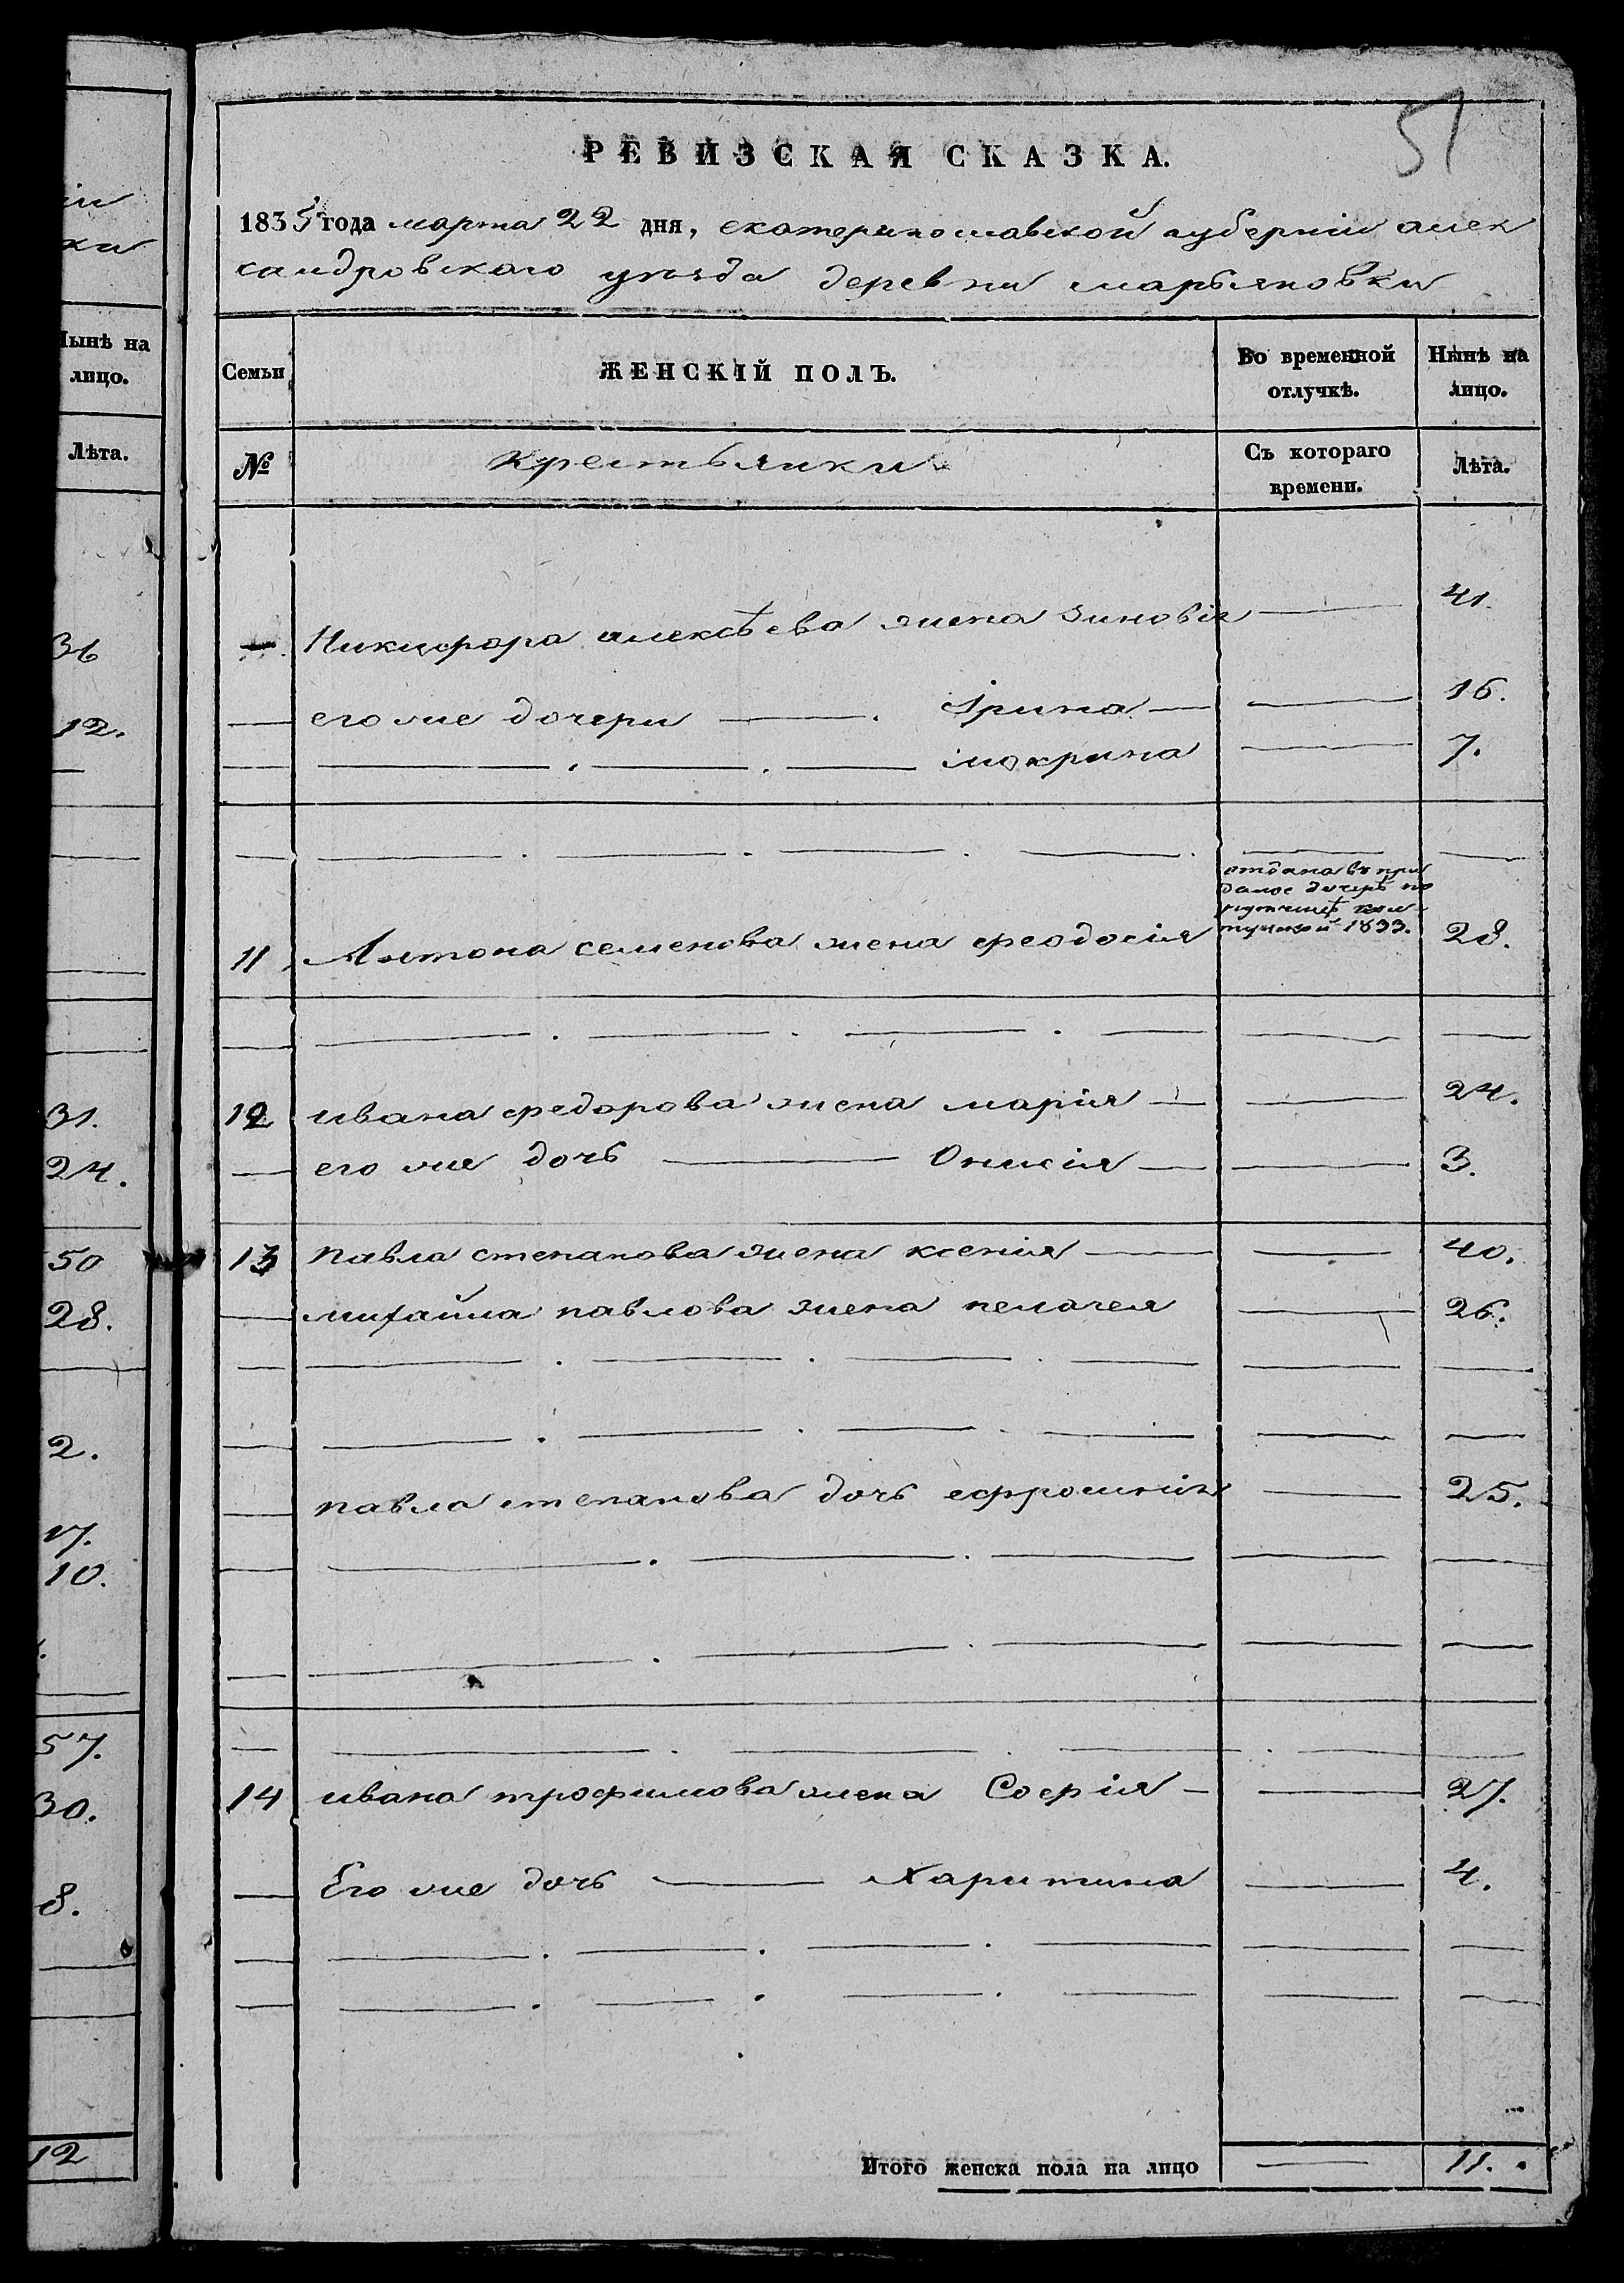 51
РЕВИЗСКАЯ СКАЗКА.
1835 года марта 22 дня, екатеринославской губернии алек
сандровского уезда деревни марьяновки
Семьи
ЖЕНСКІЙ ПОЛЪ.
Во временной отлучкѣ.
Нынѣ на лицо.
№
крестьянки
Съ котораго времени.
Лѣта.
Никифора алексѣева жена зиновія 41.
его же дочери Ірина 16.
мокрина 7.
отдана въ при
даное дочерѣ по
1833.
11 Антона семенова жена феодосія 28.
12 ивана федорова жена марія 24.
его же дочь Онисія 3.
13 павла степанова жена ксенія 40.
михайла павлова жена пелагея 26.
павла степанова дочь ефросинія 25.
14 ивана трофимова жена Софія 27.
Его же дочь Харитина 4.
Итого женска пола на лицо 11.
ки
Нынѣ на
лицо.
Лѣта.
36
12.
31.
24.
50
28.
2.
17.
10.
57.
30.
8.
12